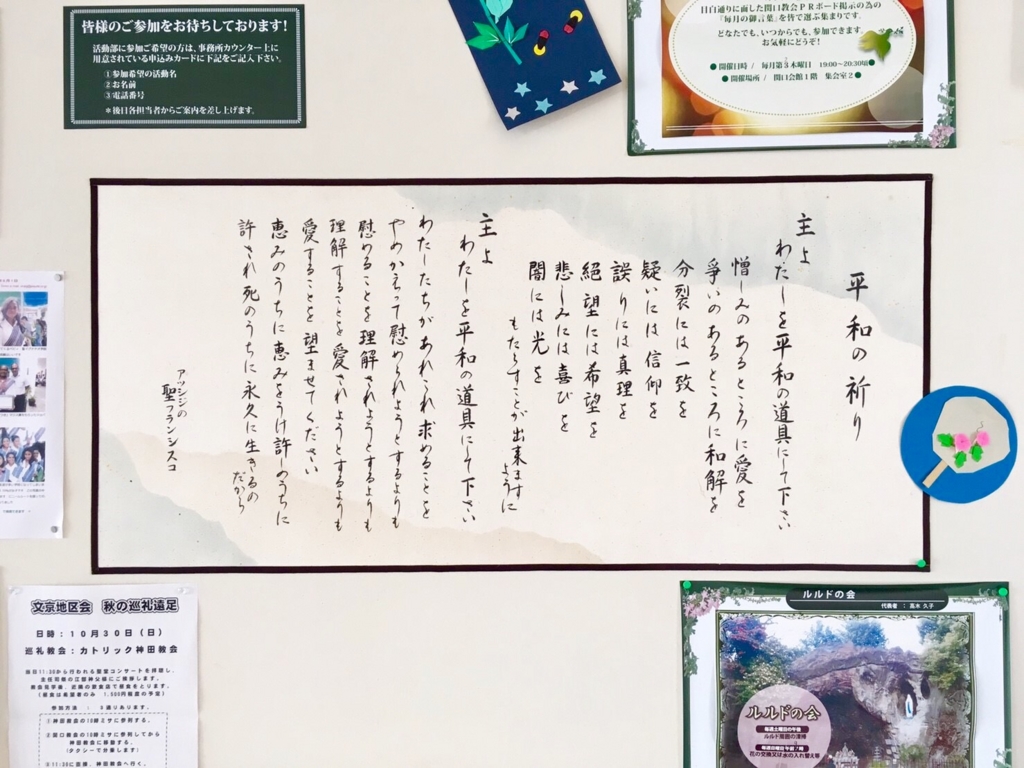 皆様のご参加をお待ちしております!
活動部に参加ご希望の方は、事務所カウンター上に
用意されている申込みカードに下記をご記入下さい。
①参加希望の活動名
②お名前
③電話番号
*後日各担当者からご案内を差し上げます。
目白通りに面した関口教会PRボード掲示の為の
「毎月の御言葉」を皆で選ぶ集まりです。
どなたでも、いつからでも、参加できます。
お気軽にどうぞ!
●開催日時 / 毎月第3木曜日 19:00~20:30頃●
●開催場所 / 関口会館1階 集会室2●
平和の祈り
主よ
わたしを平和の道具にして下さい
憎しみのあるところに愛を
争いのあるところに和解を
分裂には一致を
疑いには信仰を
誤りには真理を
絶望には希望を
悲しみには喜びを
闇には光を
もたらすことが出来ますように
主よ
わたしを平和の道具にして下さい
わたしたちがあれこれ求めることを
やめかえって慰められようとするよりも
慰めることを理解されようとするよりも
理解することを愛されようとするよりも
愛することを望ませてください
恵みのうちに恵みをうけ許しのうちに
許され死のうちに永久に生きるの
だから
アッシジの
聖フランシスコ
文京地区会 秋の巡礼遠足
日時:10月30日(日)
巡礼教会:カトリック神田教会
参加方法 : 3通りあります。
①神田教会の10時ミサに参列する。
②関口教会の10時ミサに参列してから
神田教会に移動する。
(タクシーで分乗します)
ルルドの会
代表者 : 高木 久子
ルルドの会
毎週土曜日の午後
ルルド周囲の清掃
毎週日曜日 午前7時
花の交換又は水の入れ替え等